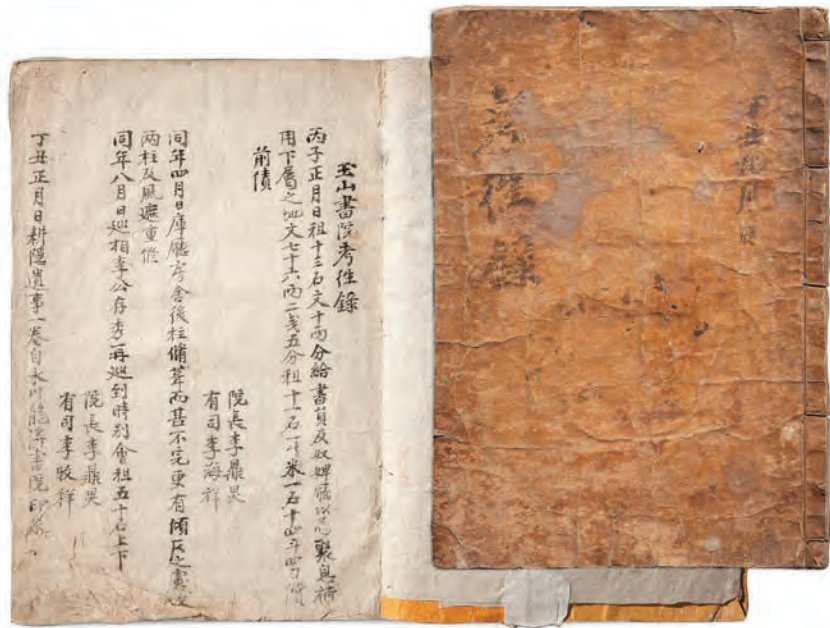 丁丑月
考往錄
玉山書院考往錄
丙子正月日租十三石文十兩分給書員及奴婢以聚息補
用下屬之地文七十六兩二戔五分租十一石一斗米一石十四斗四刀償
前債
院長李鼎炅
有司李海祥
同年四月日庫廳房舍後柱備葺而甚不完更有傾仄之慮故
兩柱及風遮重修
同年八月日巡相李公存秀再巡到時別會租五十石上下
院長李鼎炅
有司李牧祥
丁丑正月日耕隱遺事一卷自永川龍溪書院印